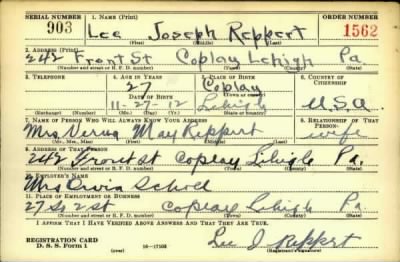 SERIAL NUMBER 1. NAME (Print) ORDER NUMBER
903 Lee Joseph Reppert 1562
(First) (Middle) (Last)
2. ADDRESS (Print)
242 Front St Coplay Lehigh Pa.
(Number and street or R. F. D. number) (Town) (County) (State)
3. TELEPHONE 4. AGE IN YEARS 5. PLACE OF BIRTH 6. COUNTRY OF CITIZENSHIP
27 Coplay
DATE OF BIRTH (Town or county)
11-27-12 Lehigh U.S.A.
(Exchange) (Number) (Mo.) (Day) (Yr.) (State or country)
7. NAME OF PERSON WHO WILL ALWAYS KNOW YOUR ADDRESS 8. RELATIONSHIP OF THAT PERSON
Mrs Verna May Reppert wife
(Mr., Mrs., Miss) (First) (Middle) (Last)
9. ADDRESS OF THAT PERSON
242 Front St Coplay Lehigh Pa.
(Number and street or R. F. D. number) (Town) (County) (State)
10. EMPLOYER'S NAME
Mrs
11. PLACE OF EMPLOYMENT OR BUSINESS
27 So 2 St Coplay Lehigh Pa.
(Number and street or R. F. D. number) (Town) (County) (State)
I AFFIRM THAT I HAVE VERIFIED ABOVE ANSWERS AND THAT THEY ARE TRUE.
REGISTRATION CARD
D. S. S. Form 1 (over) 16—17105 Lee J Reppert
(Registrant's signature)